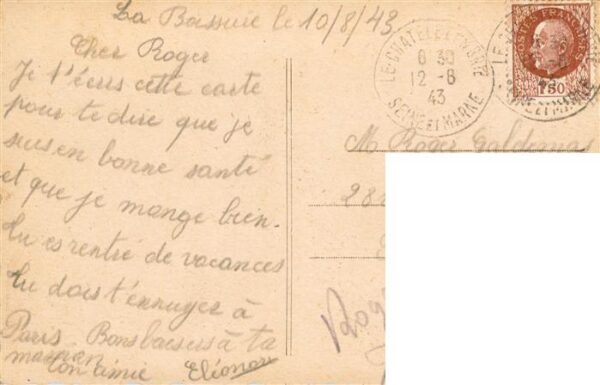 La Boissire le 10/8/43
Cher Roger
Je t'écris cette carte
pour te dire que je
suis en bonne santé
et que je mange bien.
tu es rentré de vacances
tu dois t'ennuyer à
Paris Bons baisers à ta
maman
ton amie Eléonor
LE CHATELET EN BRIE
6 30
12-8
43
SEINE ET MARNE
POSTES FRANÇAISES
1F50
SEINE ET MARNE
M Roger
28
Rog